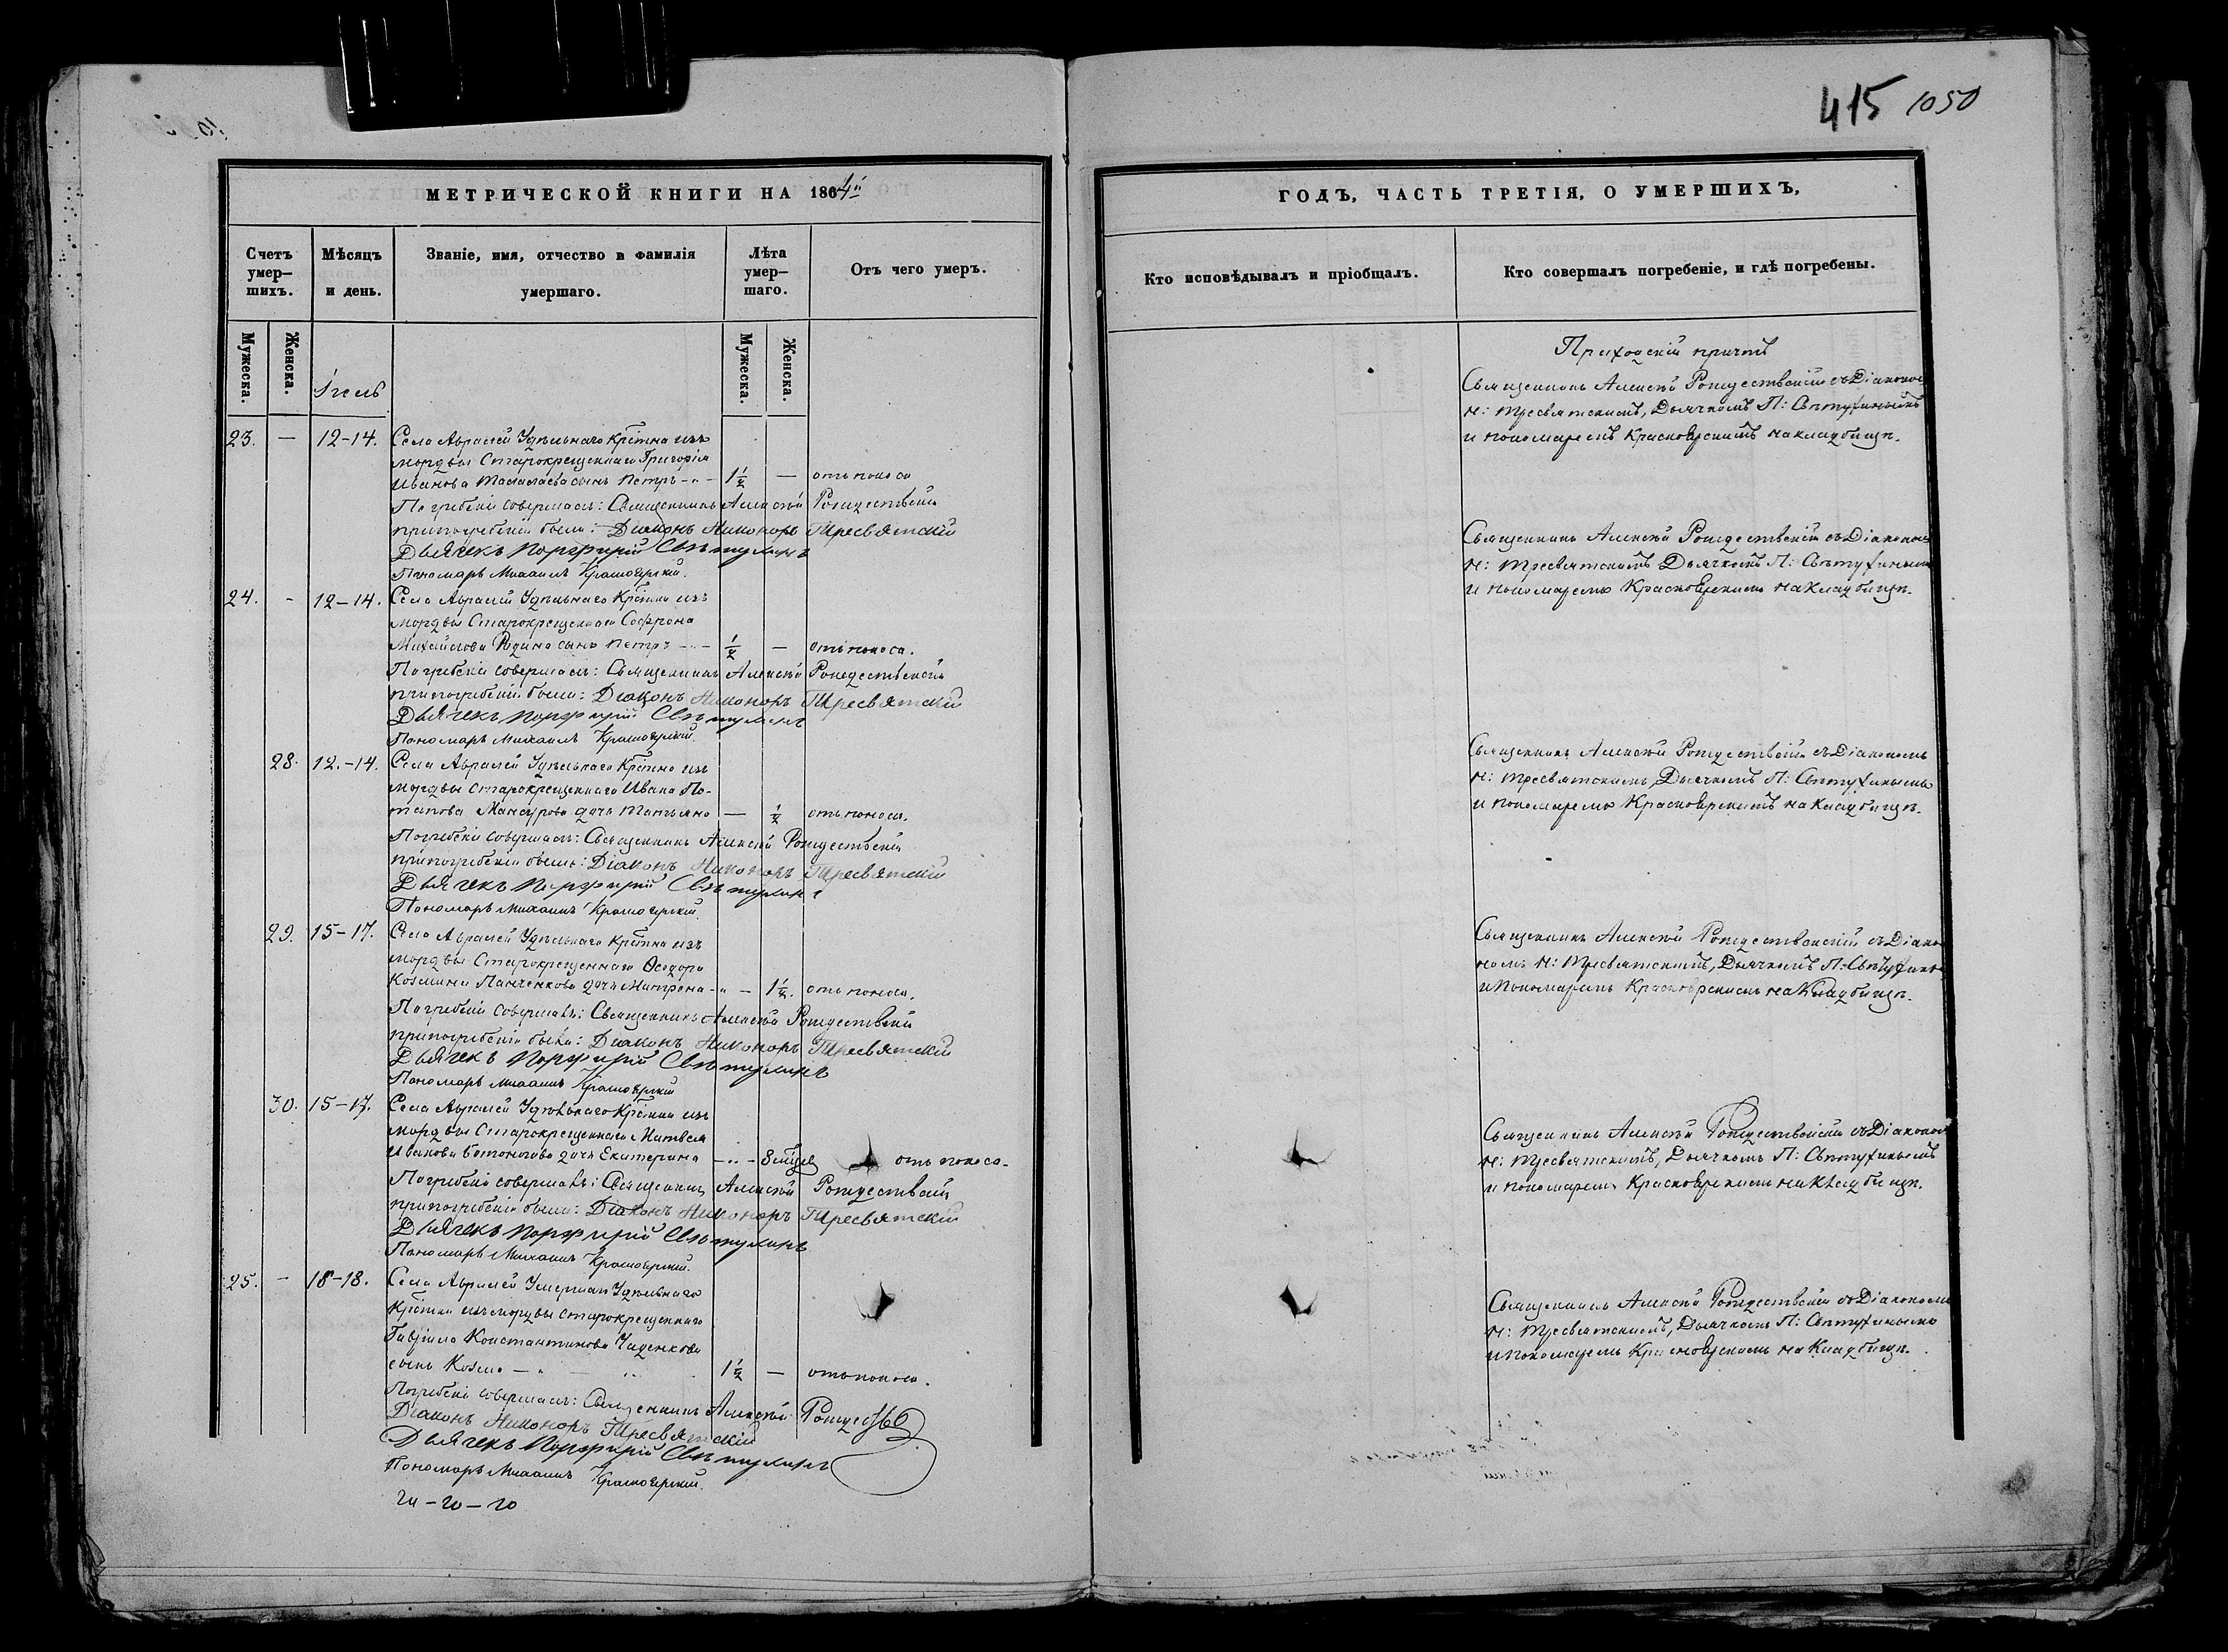 415 1050
МЕТРИЧЕСКОЙ КНИГИ НА 1864й
Счетъ умер–шихъ.
Мѣсяцъ и день.
Званіе, имя, отчество и фамилія умершаго.
Лѣта умер–шаго.
Отъ чего умеръ.
Мужеска.
Женска.
Мужеска.
Женска.
Іюль
23. — 12-14. Села Авралей Удѣльнаго Крѣтна изъ
мордвы Старокрещеннаго Григорія
Иванова сынъ Петръ 1½ — отъ поноса
Погребеніе совершалъ: Священникъ Алексѣй Рождественскій
при погребеніи были: Діаконъ Никоноръ Тресвятскій
Дьячекъ Порфирій Свѣтухинъ
Пономарь Михаилъ Красноярскій.
24. - 12-14. Села Авралей Удѣльнаго Крѣтна изъ
мордвы Старокрещеннаго Софрона
Михайлова Родина сынъ Петръ ½ — отъ поноса.
Погребеніе совершалъ: Священникъ Алексѣй Рождественскій
при погребеніи были: Діаконъ Никоноръ Тресвятскій
Дьячекъ Порфирій Свѣтухинъ
Пономарь Михаилъ Красноярскій.
28. 12.-14. Села Авралей Удѣльнаго Крѣтна изъ
мордвы Старокрещеннаго Ивана По-
тапова Мансурова дочь Татьяна — ½ отъ поноса.
Погребеніе совершалъ: Священникъ Алексѣй Рождественскій
при погребеніи были: Діаконъ Никоноръ Тресвятскій
Дьячекъ Порфирій Свѣтухинъ
Пономарь Михаилъ Красноярскій.
29. 15-17. Села Авралей Удѣльнаго Крѣтна изъ
мордвы Старокрещеннаго Ѳедора
Козмина Панченкова дочь Матрона — 1½. отъ поноса.
Погребеніе совершалъ: Священникъ Алексѣй Рождественскій
при погребеніи были: Діаконъ Никоноръ Тресвятскій
Дьячекъ Порфирій Свѣтухинъ
Пономарь Михаилъ Красноярскій
30. 15-17. Села Авралей Удѣльнаго Крѣтна изъ
мордвы Старокрещеннаго Матвея
Иванова дочь Екатерина — 8 отъ поноса.
Погребеніе совершалъ: Священникъ Алексѣй Рождественскій
при погребеніи были: Діаконъ Никоноръ Тресвятскій
Дьячекъ Порфирій Свѣтухинъ
Пономарь Михаилъ Красноярскій.
25. - 18-18. Села Авралей Умершаго Удѣльнаго
Крѣтна изъ мордвы старокрещеннаго
Гавріила Константинова Чаденкова
сынъ Козма — 1½ — отъ поноса.
Погребеніе совершалъ: Священникъ Алексѣй
Діаконъ Никоноръ Тресвятскій
Дьячекъ Порфирій Свѣтухинъ
Пономарь Михаилъ Красноярскій.
ГОДЪ, ЧАСТЬ ТРЕТІЯ, О УМЕРШИХЪ,
Кто исповѣдывалъ и пріобщалъ.
Кто совершалъ погребеніе, и гдѣ погребены.
Приходскій причтъ
Священникъ Алексѣй Рождественскій съ Діакономъ
Н: Тресвятскимъ, Дьячкомъ П: Свѣтухинымъ
и пономаремъ Красноярскимъ на кладбищѣ.
Священникъ Алексѣй Рождественскій съ Діакономъ
Н: Тресвятскимъ Дьячкомъ П: Свѣтухинымъ
и пономаремъ Красноярскимъ на кладбищѣ.
Священникъ Алексѣй Рождественскій съ Діакономъ
Н: Тресвятскимъ, Дьячкомъ П: Свѣтухинымъ
и пономаремъ Красноярскимъ на кладбищѣ.
Священникъ Алексѣй Рождественскій съ Діако-
номъ Н: Тресвятскимъ, Дьячкомъ П: Свѣтухинымъ
и Пономаремъ Красноярскимъ на Кладбищѣ.
Священникъ Алексѣй Рождественскій съ Діакономъ
Н: Тресвятскимъ, Дьячкомъ П: Свѣтухинымъ
и пономаремъ Красноярскимъ на кладбищѣ.
Священникъ Алексѣй Рождественскій съ Діакономъ
Н: Тресвятскимъ, Дьячкомъ П: Свѣтухинымъ
и пономаремъ Красноярскимъ на Кладбищѣ.